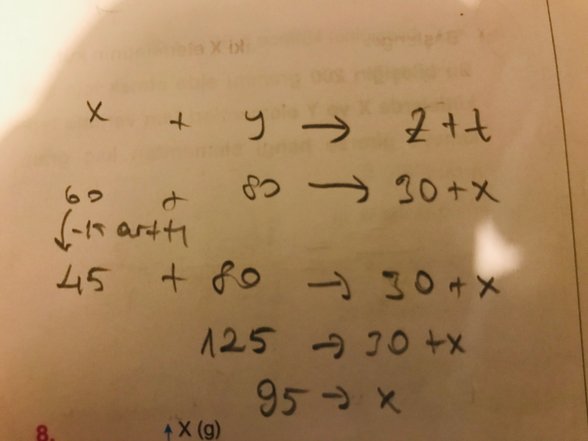 x + y → z + t
60 + 80 → 30 + x
-15 arttı
45 + 80 → 30 + x
125 → 30 + x
95 → x
8. ↑ X (g)